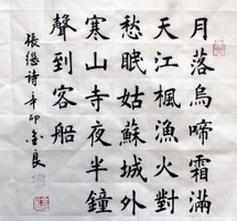 月落烏啼霜滿
天江楓漁火對
愁眠姑蘇城外
寒山寺夜半鐘
聲到客船
張繼詩辛卯良